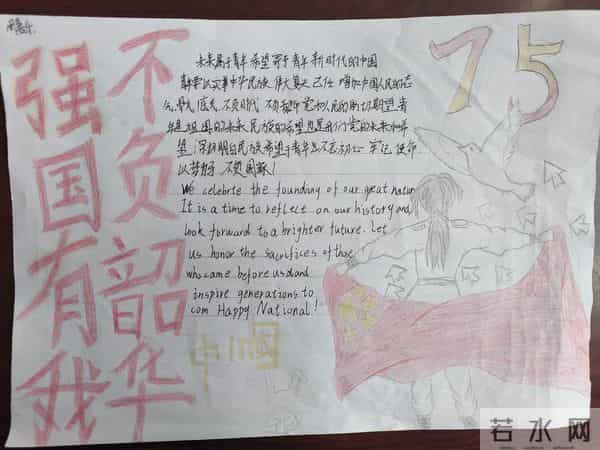 强国有我
不负韶华
75
未来属于青年 希望寄于青年 新时代的中国
青年要以实现中华民族伟大复兴为己任 增加中国人民的志
气、骨气、底气 不负时代 不负韶华 党和人民的殷切期望 青
年是祖国的未来 民族的希望
民族希望于青年 不忘初心 牢记使命
以梦为 不负国
We celebrte the founding of our great nation
It is a time to reflect on our history and
look forward to a brighter future. Let
us honor the sacrifices of those
who came before us and
inspire generations to
com Happy National!
中国
若水网